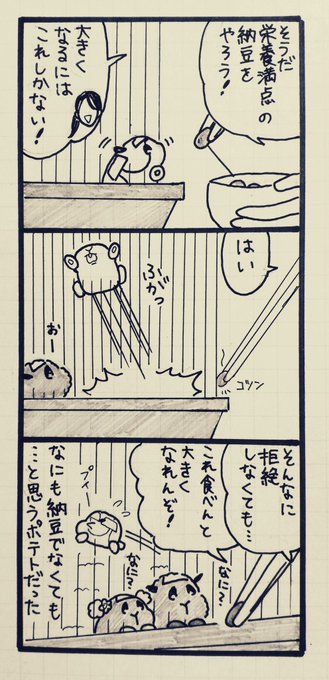 そうだ
栄養満点の
納豆を
やろう!
大きく
なるには
これしかない!
はい
ふがっ
おー
コツン
そんなに
拒絶
しなくても…
これ食べんと
大きく
なれんぞ!
プイー
なに?
なに?
なにも納豆でなくても
…と思うポテトだった